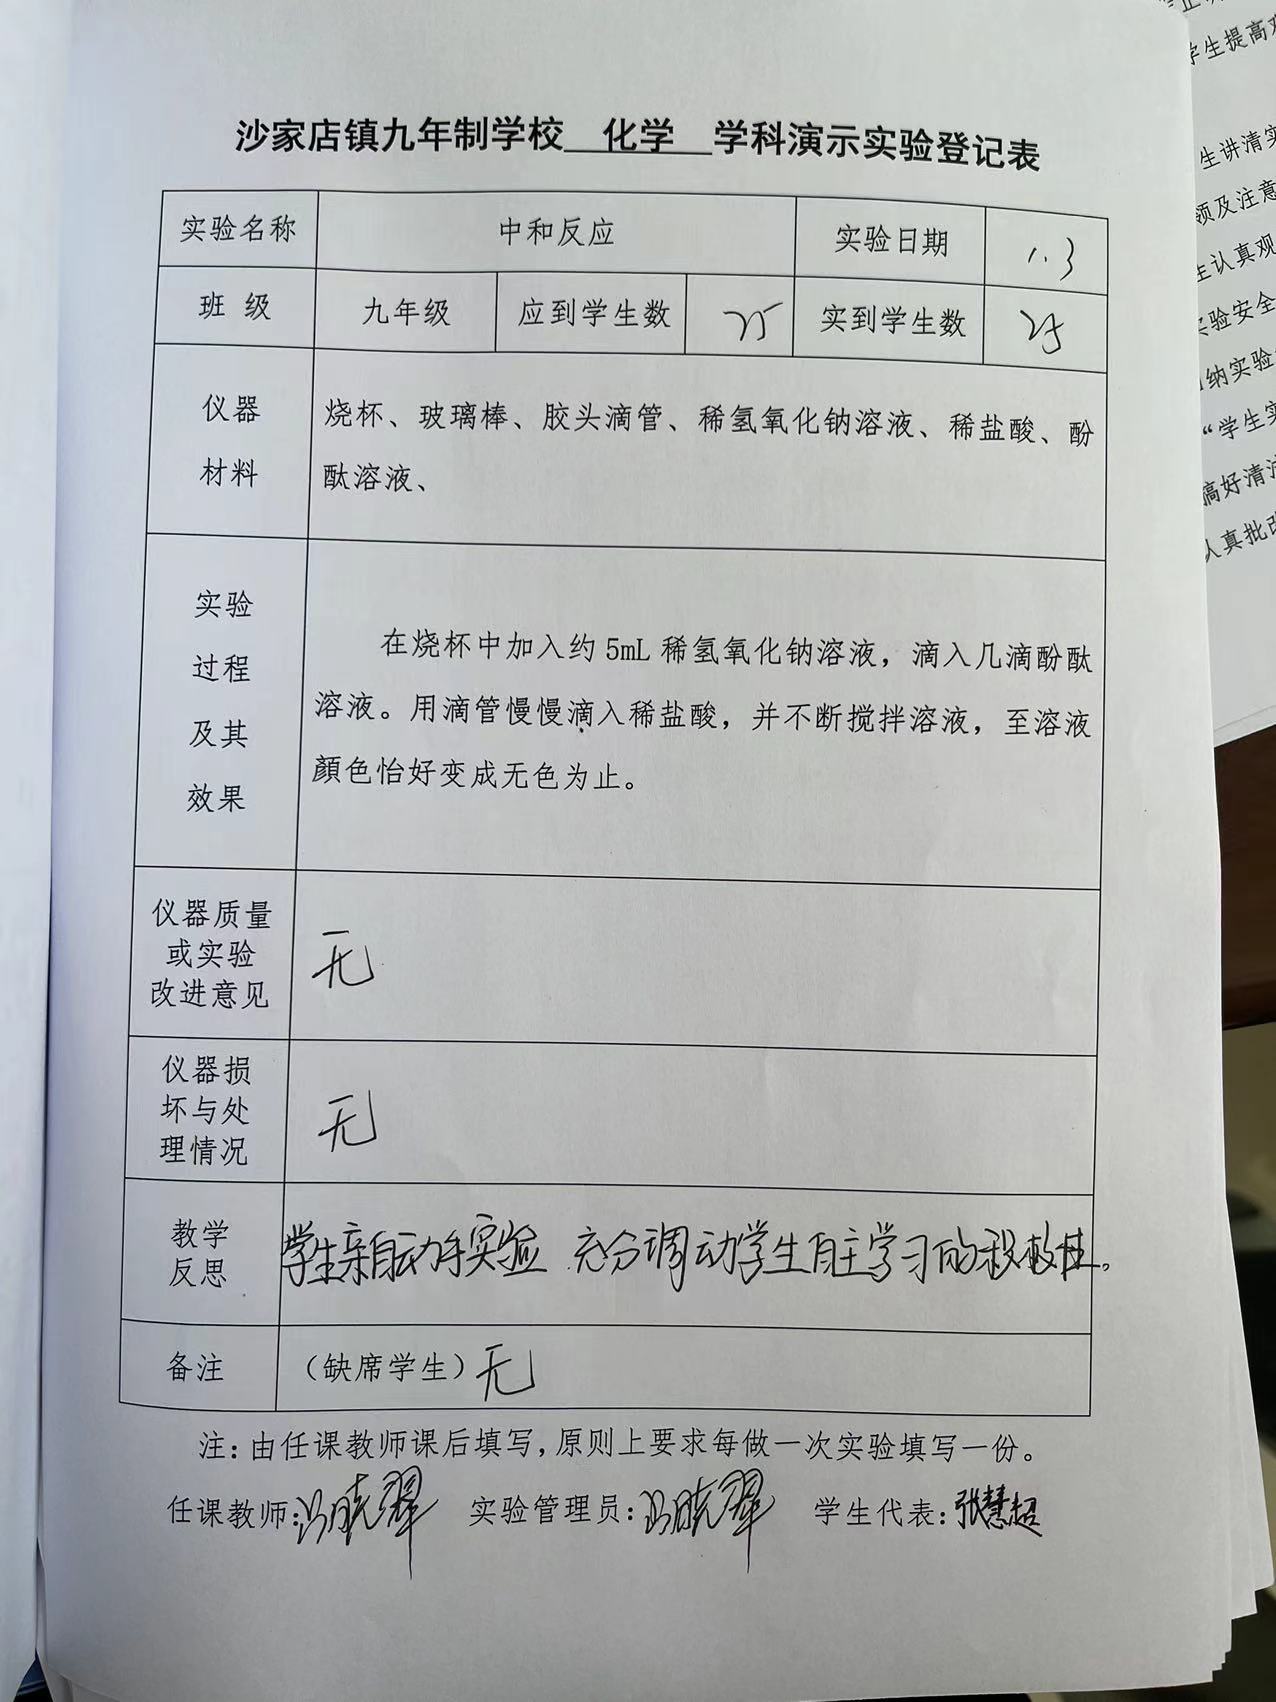 沙家店镇九年制学校 化学 学科演示实验登记表
实验名称 中和反应 实验日期 1.3
班 级 九年级 应到学生数 25 实到学生数 25
仪器
材料
烧杯、玻璃棒、胶头滴管、稀氢氧化钠溶液、稀盐酸、酚
酞溶液、
实验
过程
及其
效果
在烧杯中加入约 5mL 稀氢氧化钠溶液，滴入几滴酚酞
溶液。用滴管慢慢滴入稀盐酸，并不断搅拌溶液，至溶液
顏色怡好变成无色为止。
仪器质量
或实验
改进意见
无
仪器损
坏与处
理情况
无
教学
反思
学生亲自动手实验 充分调动学生自主学习的积极性。
备注 （缺席学生）无
注：由任课教师课后填写，原则上要求每做一次实验填写一份。
任课教师： 实验管理员： 学生代表：张慧超
学生提高
生讲清实
领及注意
生认真观
实验安全
纳实验
“学生实
搞好清洁
认真批改